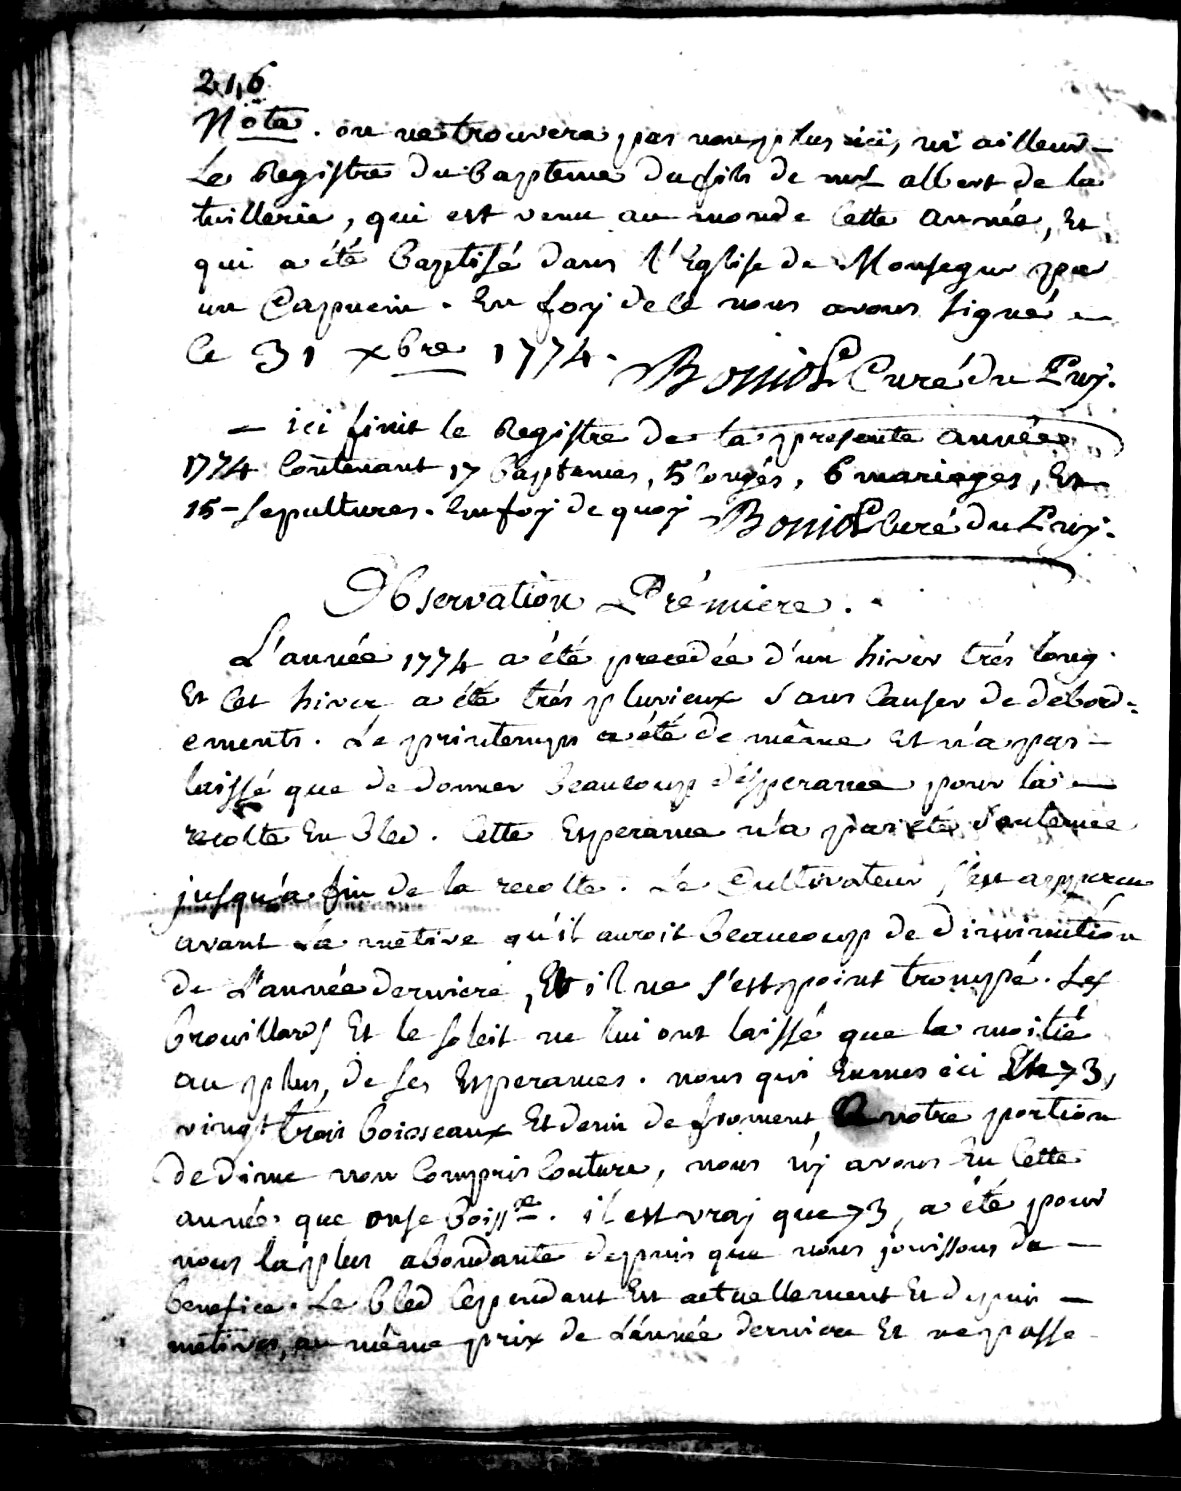 216
Nota. on ne trouvera pas non plus ici, ni ailleurs -
Le Registre du Bapteme du fils de mr albert de la
tuillerie, qui est venu au monde Cette année, Et
qui a été Baptisé dans l'Eglise de Monsegur par
un Capucin. En foy de ce nous avons signé -
le 31 xbre 1774. Boniol Curé du Puy.
- ici finit le Registre de la presente année
1774 Contenant 17 Baptemes, 5 Congés, 6 mariages, Et
15 - Sepultures. En foy de quoy Boniol Curé du Puy.
Observation Prémiere.
L'année 1774 a été precedée d'un hiver trés long.
Et Cet hiver a été trés pluvieux sans Causer de debord=
ements. Le printemps a été de même Et n'a pas -
laissé que de donner beaucoup d'esperance pour la -
recolte En bled. Cette Esperance n'a pas été soutenue
jusqu'a fin de la recolte. Le Cultivateur s'est apperçu
avant La métive qu'il auroit beaucoup de diminution
de L'année derniere, Et il ne s'est point trompé. Les
brouillards Et le soleil ne lui ont laissé que la moitié
au plus, de ses Esperances. nous qui Eumes ici En 73,
vingt trois boisseaux Et demi de froment, a notre portion
de Dime non Compris Couture, nous n'y avons Eu Cette
année que onse boissx. il est vray que 73, a été pour
nous la plus abondante depuis que nous jouissons du -
benefice. Le bled Cependant Est actuellement Et depuis -
métives, au même prix de L'année derniere Et ne passe